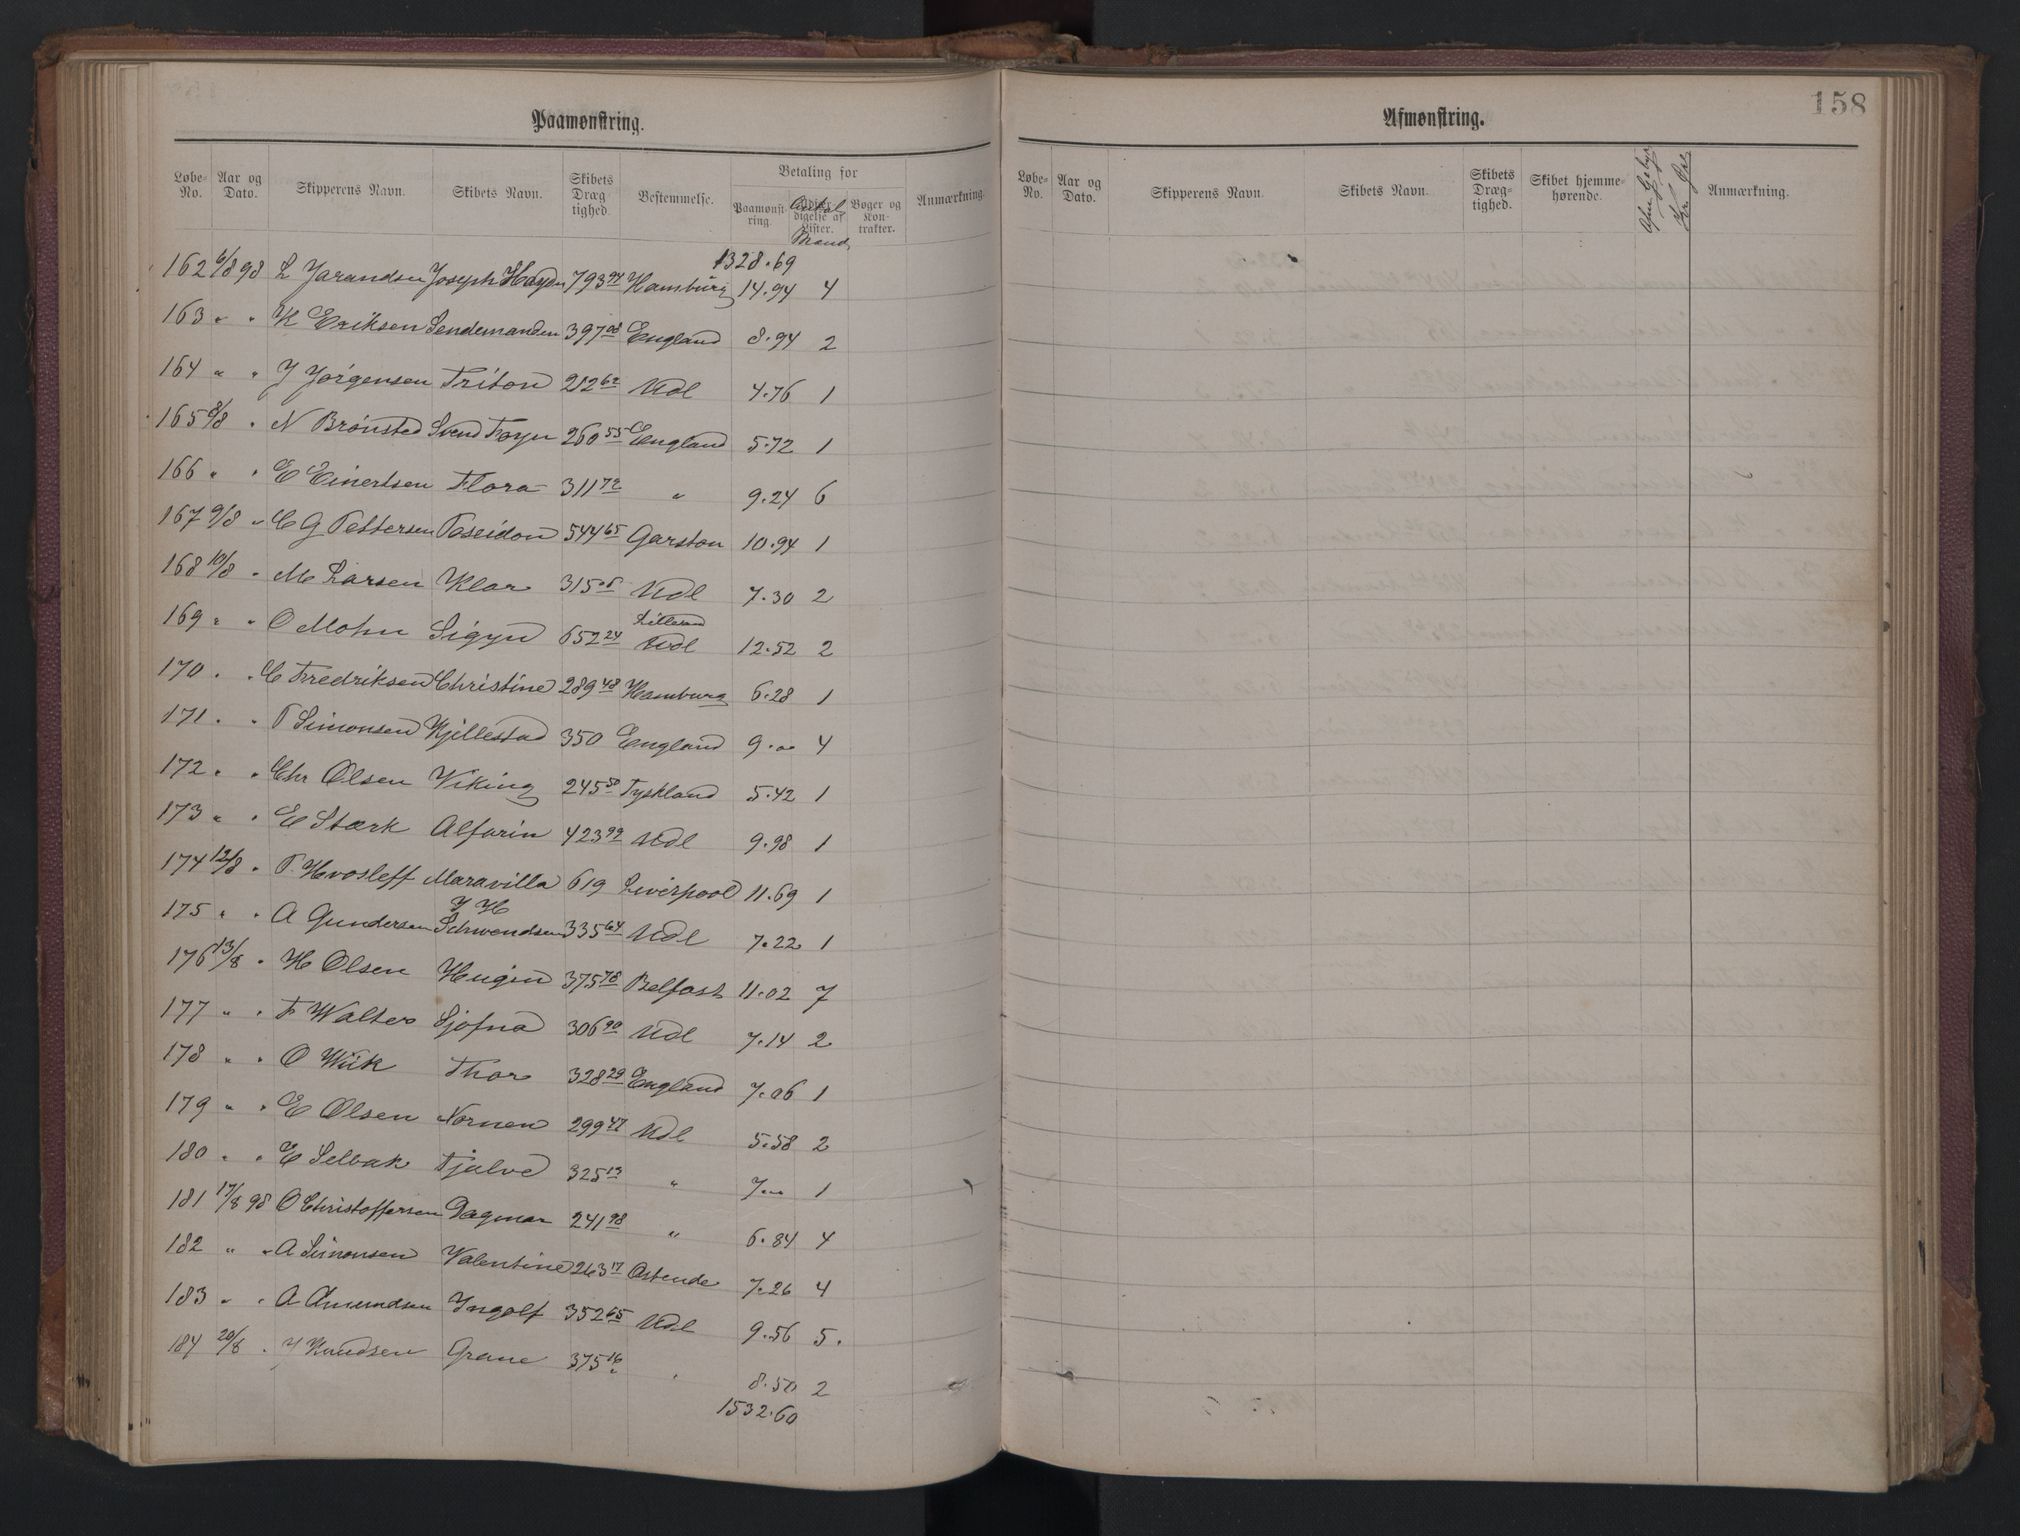 Paamønstring.
Løbe-No. Aar og Dato. Skipperens Navn. Skibets Navn. Skibets Drægtighed. Bestemmelse. Betaling for Paamønstring. Antal Mand Bøger og Kontrakter. Anmærkning.
1328.69
162 6/8 98 L Jarandsen Joseph Haydn 793 94 Hamburg 14.94 4
163 " " K Eriksen Sendemanden 397 08 England 8.94 2
164 " " J Jörgensen Triton 212 62 Udl 4.76 1
165 8/8 " N Brönsted Svend Foyn 260 55 England 5.72 1
166 " " E Einertsen Flora 311 72 " 9.24 6
167 9/8 " C G Pettersen Poseidon 544 65 Garston 10.94 1
168 10/8 " M Larsen Klar 315 06 Udl 7.30 2
169 " " O Mohn Sigyn 652 24 Udl 12.52 2
170 " " C Fredriksen Christine 289 48 Hamburg 6.28 1
171 " " P Simonsen Kjillestad 350 England 9." 4
172 " " Chr Olsen Viking 245 50 Tyskland 5.42 1
173 " " E Stærk Alfarin 423 99 Udl 9.98 1
174 12/8 " P. Hvosleff Maravilla 619 Liverpool 11.69 1
175 " " A Gundersen J H Schwendsen 335 64 Udl 7.22 1
176 13/8 " H Olsen Hugin 375 78 Belfast 11.02 7
177 " " F Walter Sjofna 306 90 Udl 7.14 2
178 " " O Wiik Thor 328 29 England 7.06 1
179 " " E Olsen Nornen 299 47 Udl 5.58 2
180 " " E Selbak Tjalve 325 13 " 7." 1
181 17/8 98 O Christoffersen Dagmar 241 98 " 6.84 4
182 " " A Simonsen Valentine 263 17 Ostende 7.26 4
183 " " A Amundsen Ingolf 352 65 Udl 9.56 5.
184 20/8 " J Knudsen Grane 375 16 " 8.50 2
1532.60
158
Afmønstring.
Løbe-No. Aar og Dato. Skipperens Navn. Skibets Navn. Skibets Drægtighed. Skibet hjemmehørende. Anmærkning.